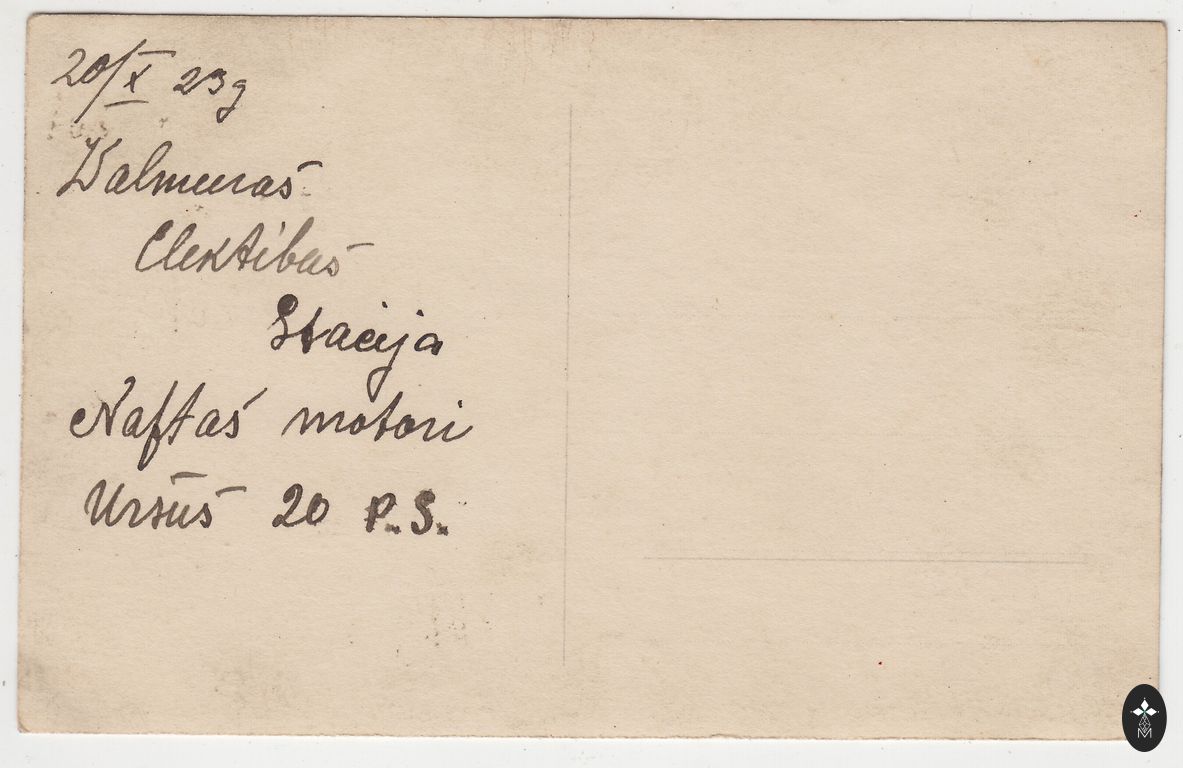 20/X 23g
Walmeeras
Elektibas
Stacija
Naftas motori
Ursus 20 P.S.
M